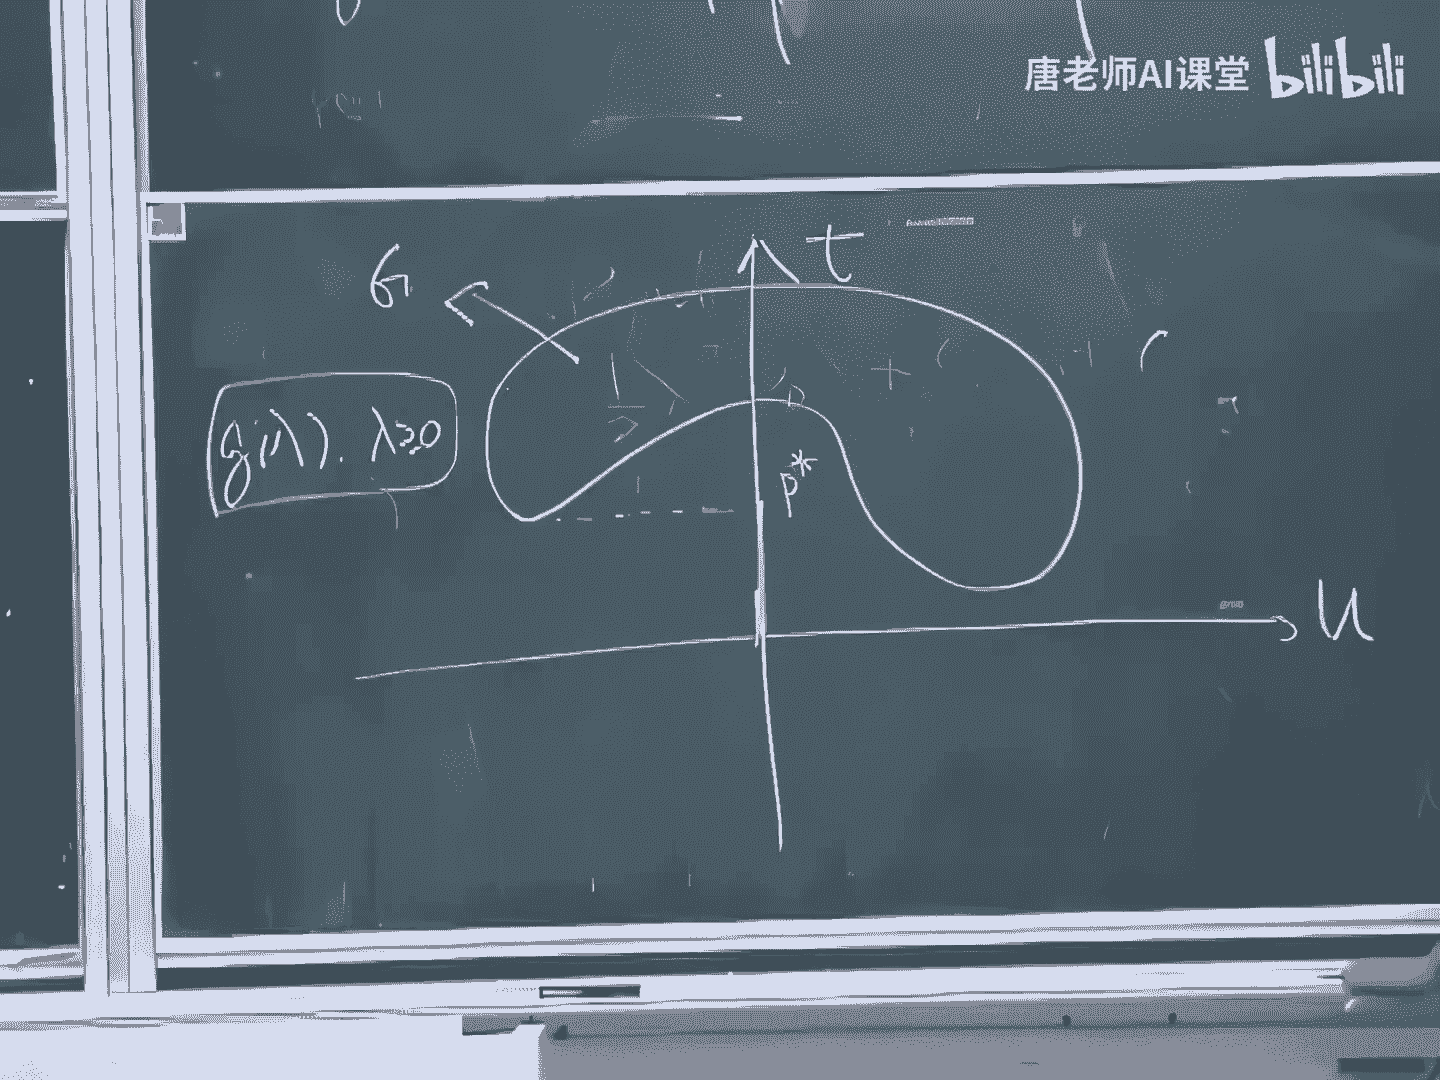 唐老师AI课堂 bilibili
t
G
g(λ). λ≥0
p*
u